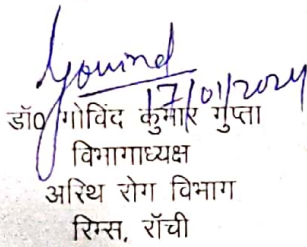 Govind
17/01/2024
डॉ0 गोविंद कुमार गुप्ता
विभागाध्यक्ष
अस्थि रोग विभाग
रिम्स, राँची